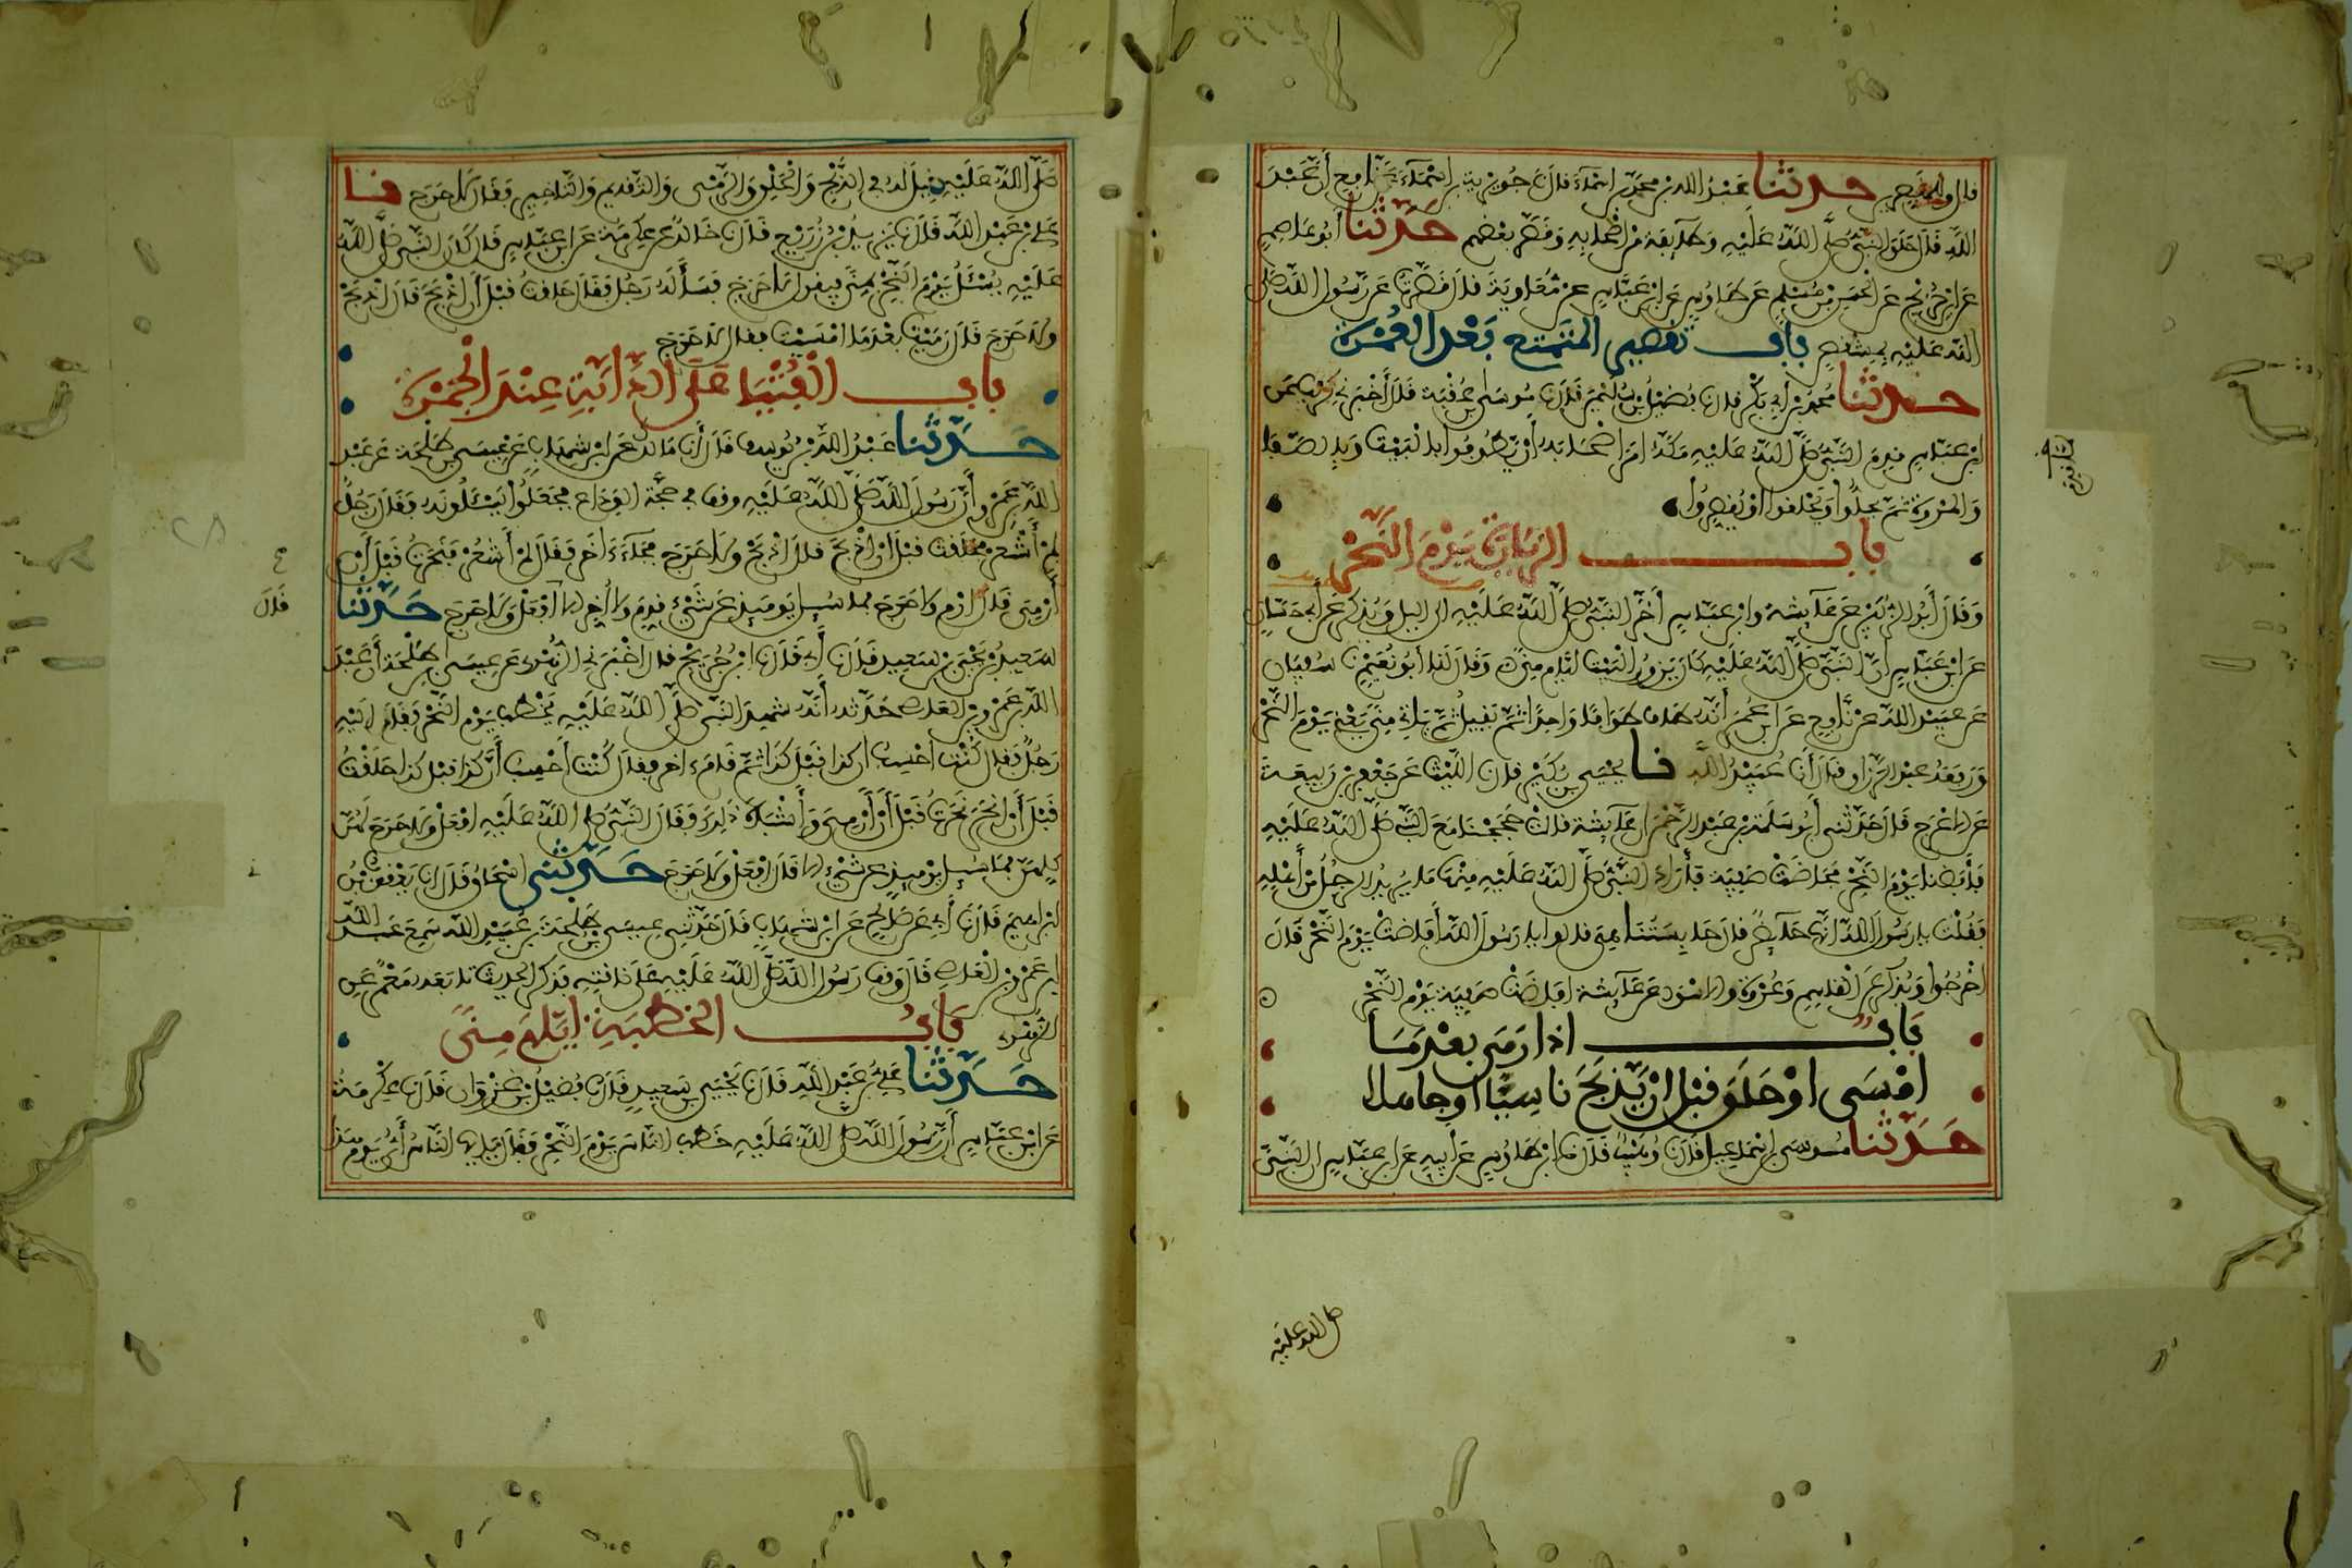 قال وللمقصرين حدثنا عبد الله بن محمد بن اسماء قال نا جويرية بن اسماء عن نافع أن عبد
الله قال حلق النبي صلى الله عليه وطايفة من اصحابه وقصر بعضهم حدثنا أبو عاصم
عن ابن جريج عن الحسن بن مسلم عن طاوس عن ابن عباس عن معاوية قال قصرت عن رسول الله صلى
الله عليه بمشقص باب تقصير المتمتع بعد العمرة
حدثنا محمد بن أبي بكر قال نا فضيل بن سليمن قال نا موسى بن عقبة قال أخبرني كريب عن
ابن عباس قدم النبي صلى الله عليه مكة امر اصحابه أن يطوفوا بالبيت وبالصفا
والمروة ثم يحلوا ويحلقوا او يقصروا
باب الزيارة يوم النحر
وقال أبو الزبير عن عائشة وابن عباس أخر النبي صلى الله عليه الى اليل ويذكر عن أبي حسان
عن ابن عباس ان النبي صلى الله عليه كان يزور البيت ايام منى وقال لنا أبو نعيم نا سفيان
عن عبيد الله عن نافع عن ابن عمر أنه طاف طوافا واحدا ثم يقيل ثم ياتي منى يعني يوم النحر
ورفعه عبد الرزاق قال أنا عبيد الله نا يحيى بن بكير قال نا الليث عن جعفر بن ربيعة
عن الاعرج قال حدثني أبو سلمة بن عبد الرحمن ان عائشة قالت حججنا مع النبي صلى الله عليه
فأفضنا يوم النحر فحاضت صفية فأراد النبي صلى الله عليه منها ما يريد الرجل من أهله
فقلت يا رسول الله انها حائض قال حابستنا هي قالوا يا رسول الله أفاضت يوم النحر قال
اخرجوا ويذكر عن القاسم وعروة والاسود عن عائشة افاضت صفية يوم النحر
باب اذا رمى بعد ما
امسى او حلق قبل ان يذبح ناسيا او جاهلا
حدثنا موسى بن اسماعيل قال نا وهيب قال نا ابن طاوس عن أبيه عن ابن عباس ان النبي
صلى الله عليه
صلى الله عليه قيل له في الذبح والحلق والرمي والتقديم والتاخير فقال لا حرج نا
علي بن عبد الله قال نا يزيد بن زريع قال نا خالد عن عكرمة عن ابن عباس قال كان النبي صلى الله
عليه يسئل يوم النحر بمنى فيقول لا حرج فسأله رجل فقال حلقت قبل أن اذبح قال اذبح
ولا حرج قال رميت بعد ما امسيت فقال لا حرج
باب الفتيا على الدابة عند الجمرة
حدثنا عبد الله بن يوسف قال أنا مالك عن ابن شهاب عن عيسى بن طلحة عن عبد
الله بن عمرو أن رسول الله صلى الله عليه وقف في حجة الوداع فجعلوا يسئلونه فقال رجل
لم أشعر فحلقت قبل ان اذبح قال اذبح ولا حرج فجاء اخر فقال لم أشعر فنحرت قبل أن
أرمي قال ارم ولا حرج فما سئل يومئذ عن شيء قدم ولا أخر الا قال افعل ولا حرج حدثنا
قال
سعيد بن يحيى بن سعيد قال نا أبي قال نا ابن جريج قال اخبرني الزهري عن عيسى بن طلحة أن عبد
الله بن عمرو بن العاص حدثه أنه شهد النبي صلى الله عليه يخطب يوم النحر فقام اليه
رجل فقال كنت احسب ان كذا قبل كذا ثم قام اخر فقال كنت أحسب أن كذا قبل كذا حلقت
قبل أن انحر نحرت قبل أن أرمي وأشباه ذلك فقال النبي صلى الله عليه افعل ولا حرج لهن
كلهن فما سئل يومئذ عن شيء الا قال افعل ولا حرج حدثني اسحاق قال انا يعقوب بن
ابراهيم قال نا أبي عن صالح عن ابن شهاب قال حدثني عيسى بن طلحة بن عبيد الله سمع عبد الله
ابن عمرو بن العاص قال وقف رسول الله صلى الله عليه على ناقته فذكر الحديث تابعه معمر عن
الزهري باب الخطبة ايام منى
حدثنا علي بن عبد الله قال نا يحيى بن سعيد قال نا فضيل بن غزوان قال نا عكرمة
عن ابن عباس أن رسول الله صلى الله عليه خطب الناس يوم النحر فقال يايها الناس أي يوم هذا